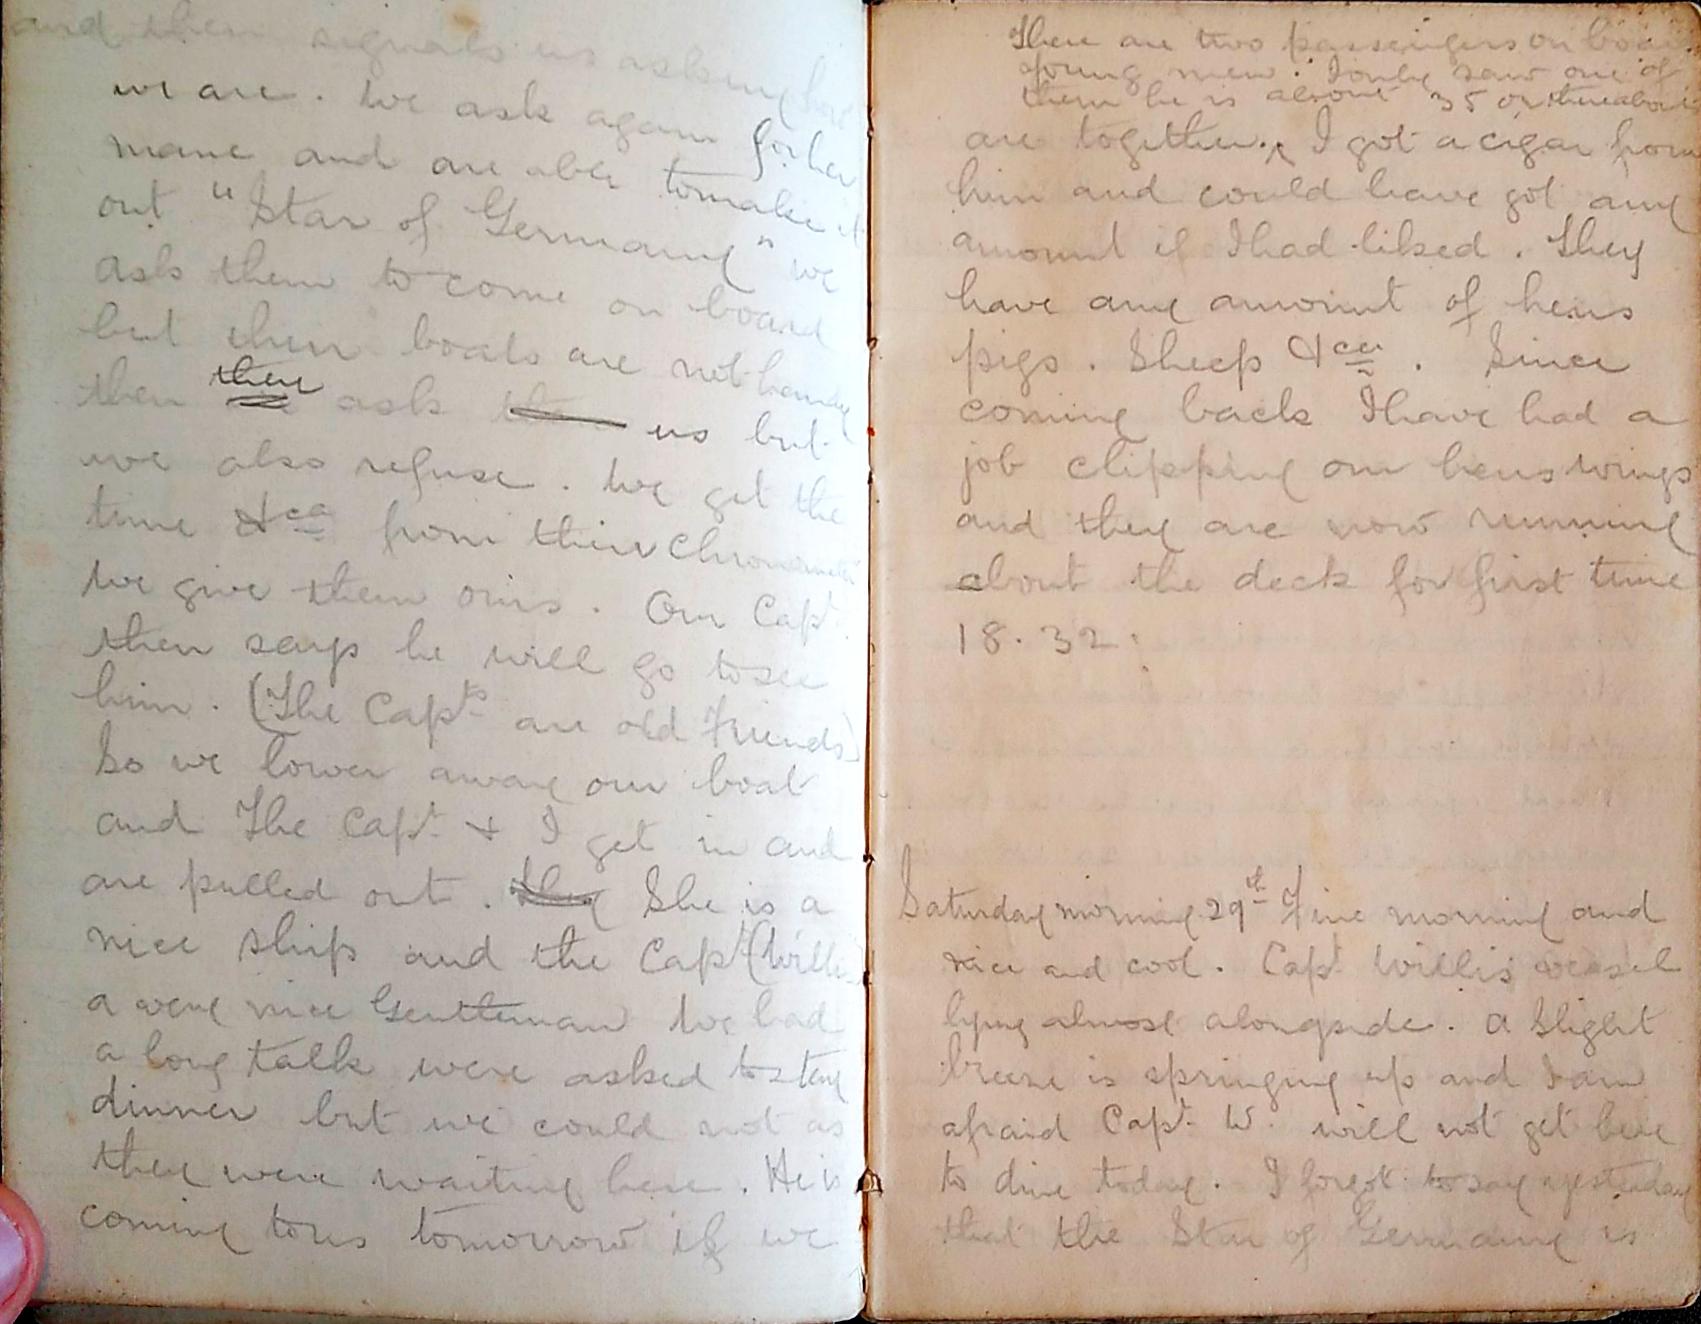 and then signals us asking how
we are. We ask again for her
name and are able to make it
out "Star of Germany" we
ask them to come on board
but their boats are not handy
then they ask us but
we also refuse. We get the
time &ca from their Chronometer
We give them ours. Our Capt.
then says he will go to see
him. (The Capts are old Friends)
So we lower away our boat
and The Capt. & I get in and
are pulled out. They She is a
nice ship and the Capt (Willis)
a very nice Gentleman We had
a long talk were asked to stay
dinner but we could not as
they were waiting here. He is
coming to us tomorrow if we
There are two passengers on board
young men. I only saw one of
them he is about 35 or thereabouts
are together. I got a cigar from
him and could have got any
amount if I had liked. They
have any amount of hens
pigs. Sheep &ca. Since
coming back I have had a
job clipping our hens wings
and they are now running
about the deck for first time
18.32.
Saturday morning 29th Fine morning and
nice and cool. Capt. Willis vessel
lying almost alongside. A Slight
breeze is springing up and I am
afraid Capt. W. will not get here
to dine today. I forgot to say yesterday
that the Star of Germany is